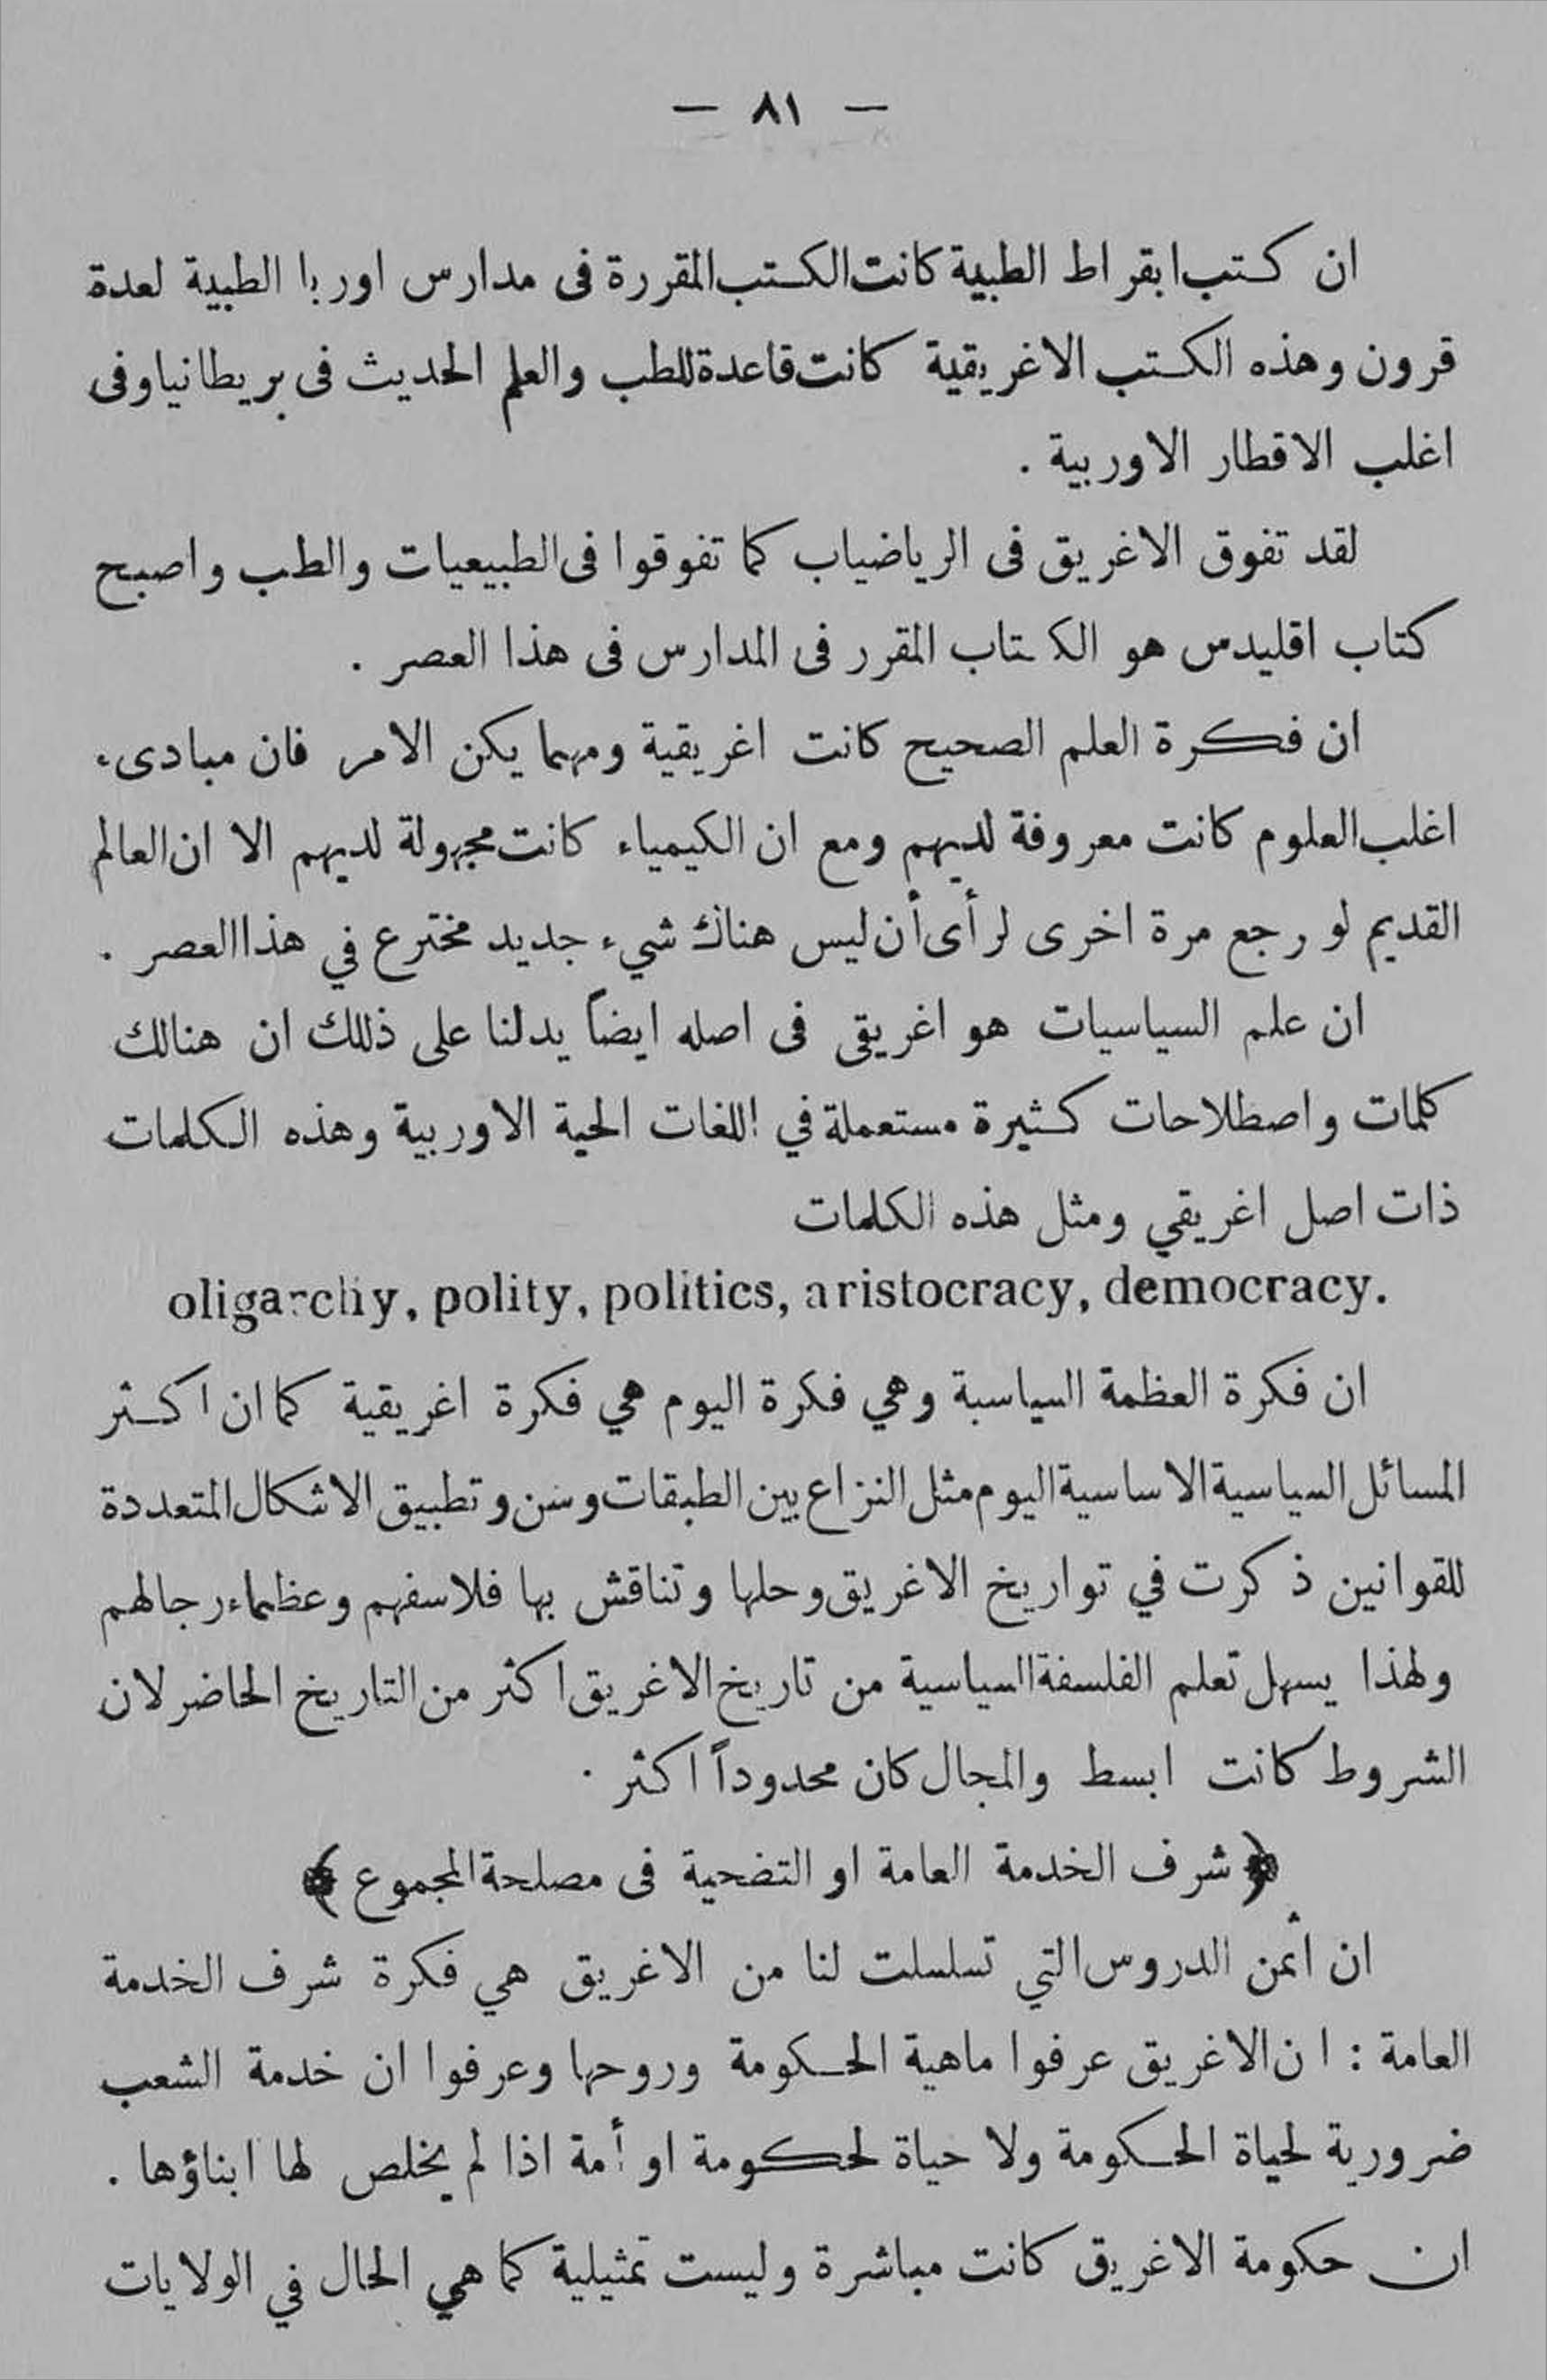 — ٨١ —
ان كتب ابقراط الطبية كانت الكتب المقررة فى مدارس اوربا الطبية لعدة
قرون وهذه الكتب الاغريقية كانت قاعدة للطب والعلم الحديث فى بريطانيا وفى
اغلب الاقطار الاوربية .
لقد تفوق الاغريق فى الرياضياب كما تفوقوا فى الطبيعيات والطب واصبح
كتاب اقليدس هو الكتاب المقرر فى المدارس فى هذا العصر .
ان فكرة العلم الصحيح كانت اغريقية ومهما يكن الامر فان مبادىء
اغلب العلوم كانت معروفة لديهم ومع ان الكيمياء كانت مجهولة لديهم الا ان العالم
القديم لو رجع مرة اخرى لرأى أن ليس هناك شيء جديد مخترع في هذا العصر .
ان علم السياسيات هو اغريقى فى اصله ايضاً يدلنا على ذلك ان هنالك
كلمات واصطلاحات كثيرة مستعملة في اللغات الحية الاوربية وهذه الكلمات
ذات اصل اغريقي ومثل هذه الكلمات
oligarchy, polity, politics, aristocracy, democracy.
ان فكرة العظمة السياسبة وهي فكرة اليوم هي فكرة اغريقية كما ان اكثر
المسائل السياسية الاساسية اليوم مثل النزاع بين الطبقات وسن وتطبيق الاشكال المتعددة
للقوانين ذكرت في تواريخ الاغريق وحلها وتناقش بها فلاسفهم وعظماء رجالهم
ولهذا يسهل تعلم الفلسفة السياسية من تاريخ الاغريق اكثر من التاريخ الحاضر لان
الشروط كانت ابسط والمجال كان محدوداً اكثر .
﴿ شرف الخدمة العامة او التضحية فى مصلحة المجموع ﴾
ان أثمن الدروس التي تسلسلت لنا من الاغريق هي فكرة شرف الخدمة
العامة : ان الاغريق عرفوا ماهية الحكومة وروحها وعرفوا ان خدمة الشعب
ضرورية لحياة الحكومة ولا حياة لحكومة او أمة اذا لم يخلص لها ابناؤها .
ان حكومة الاغريق كانت مباشرة وليست تمثيلية كما هي الحال في الولايات